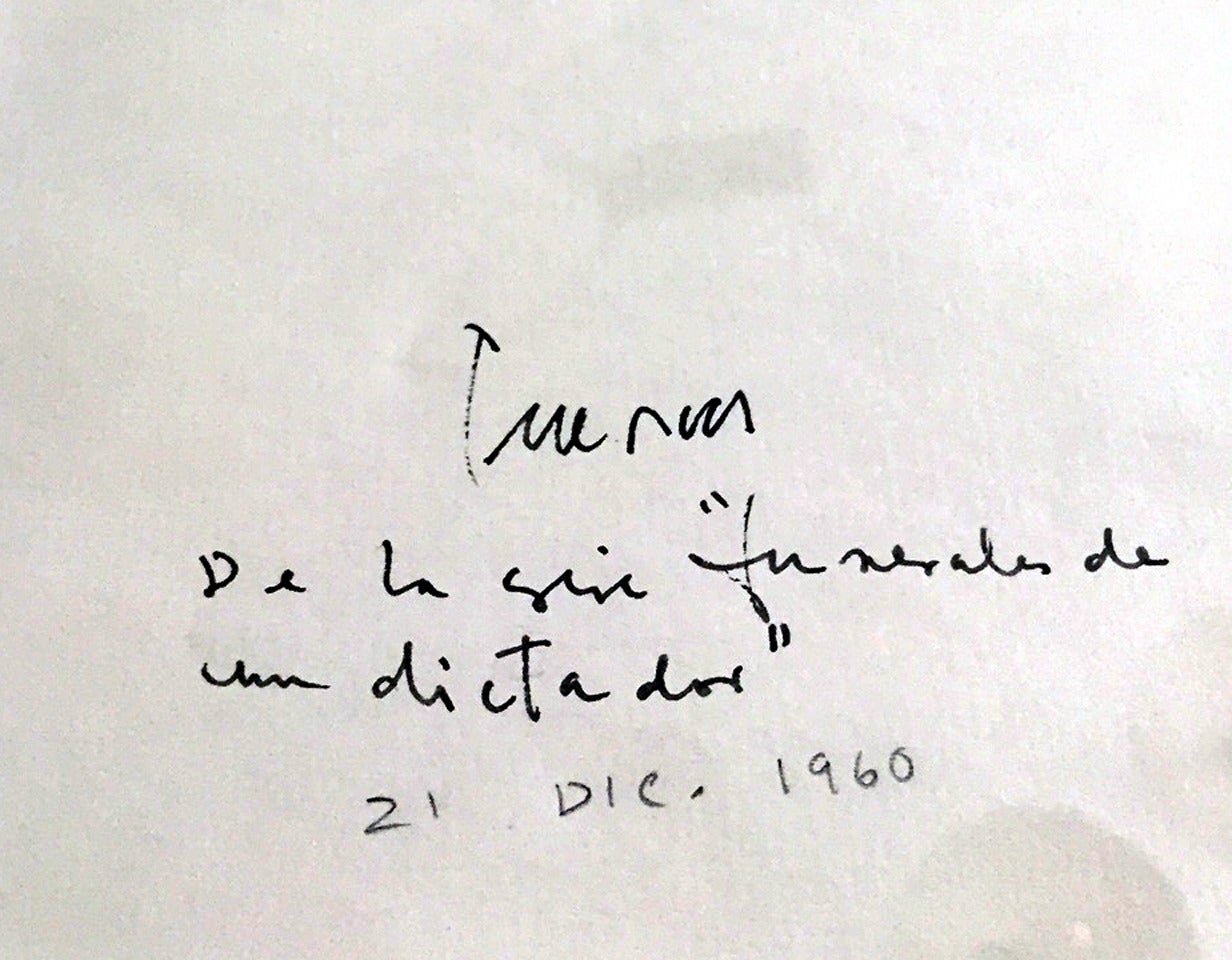 Cuevas
De la serie "funerales de
un dictador"
21 DIC. 1960